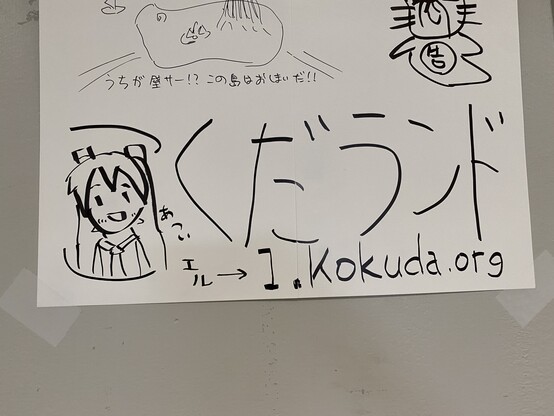 うちが壁サー!? この島はおしまいだ!!
告
くだランド
あつい
エル→ l.kokuda.org